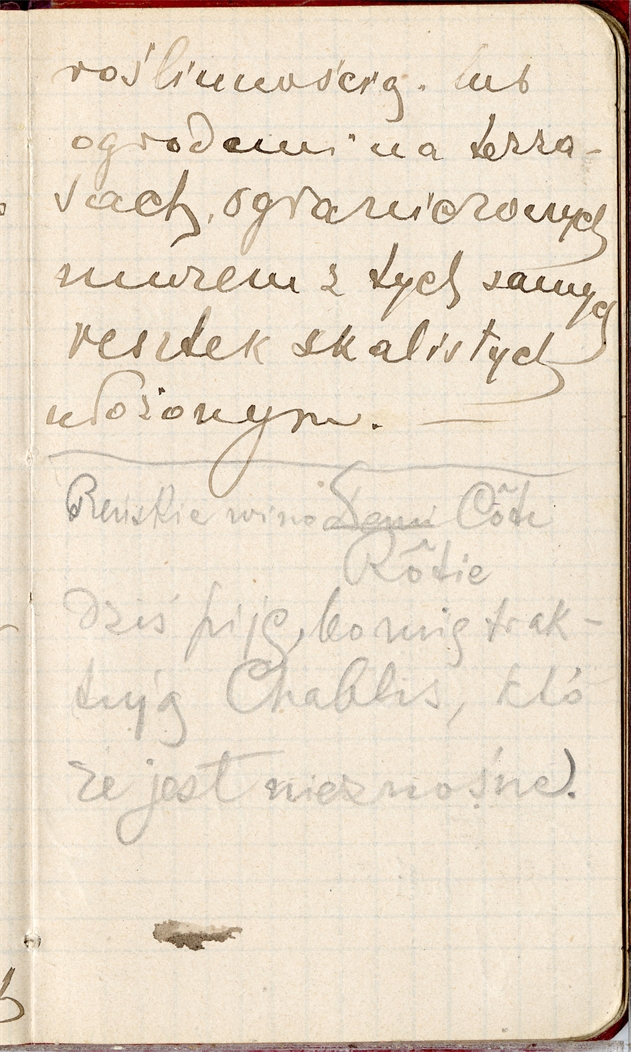 roślinnością. lub
ogrodami na terra-
sach, ograniczonych
murem z tych samych
resztek skalistych
ułożonym. —
Reńskie wino Demi Côte
Rôtie
dziś piję, bo mię trak-
tują Chablis, któ
re jest nieznośne).